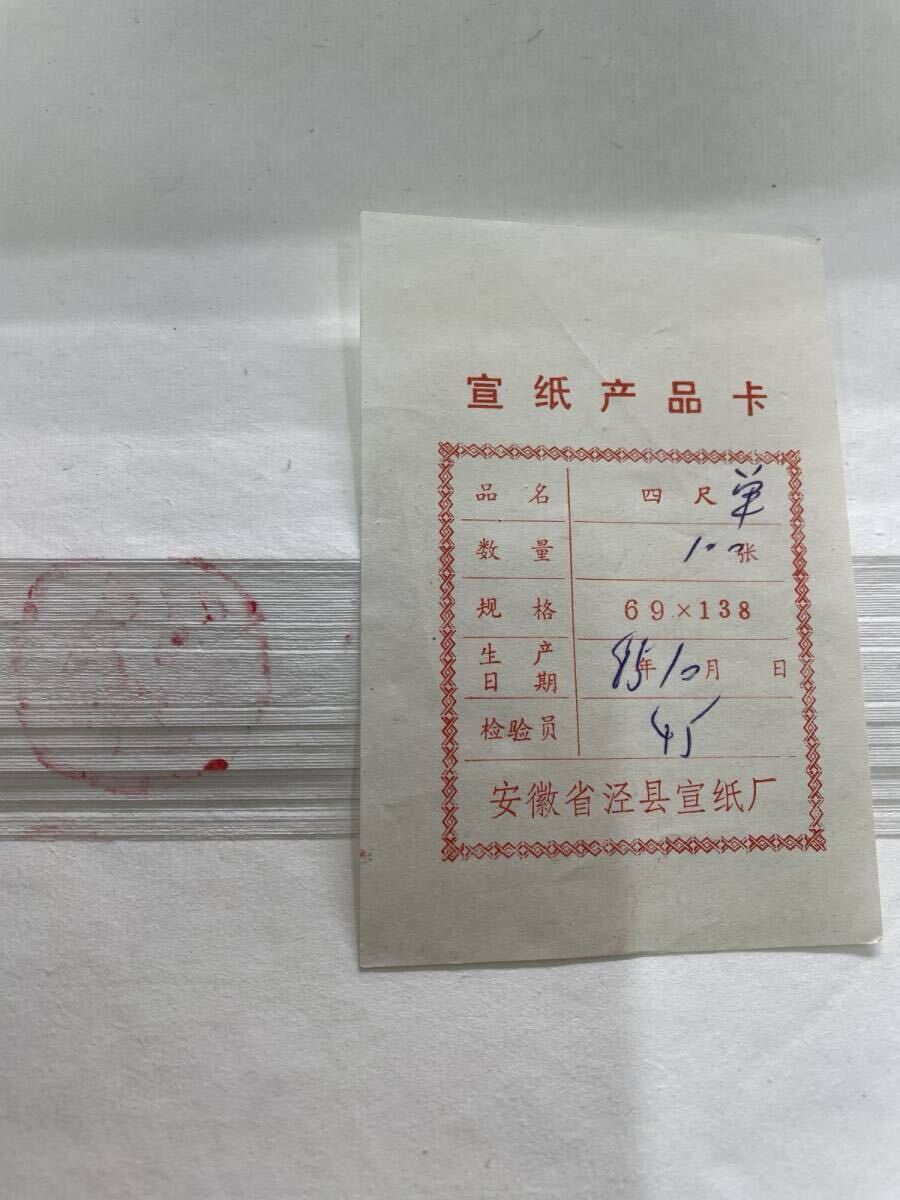 宣纸产品卡
品名 四尺单
数量 100张
规格 69×138
生产日期 85年10月 日
检验员 45
安徽省泾县宣纸厂